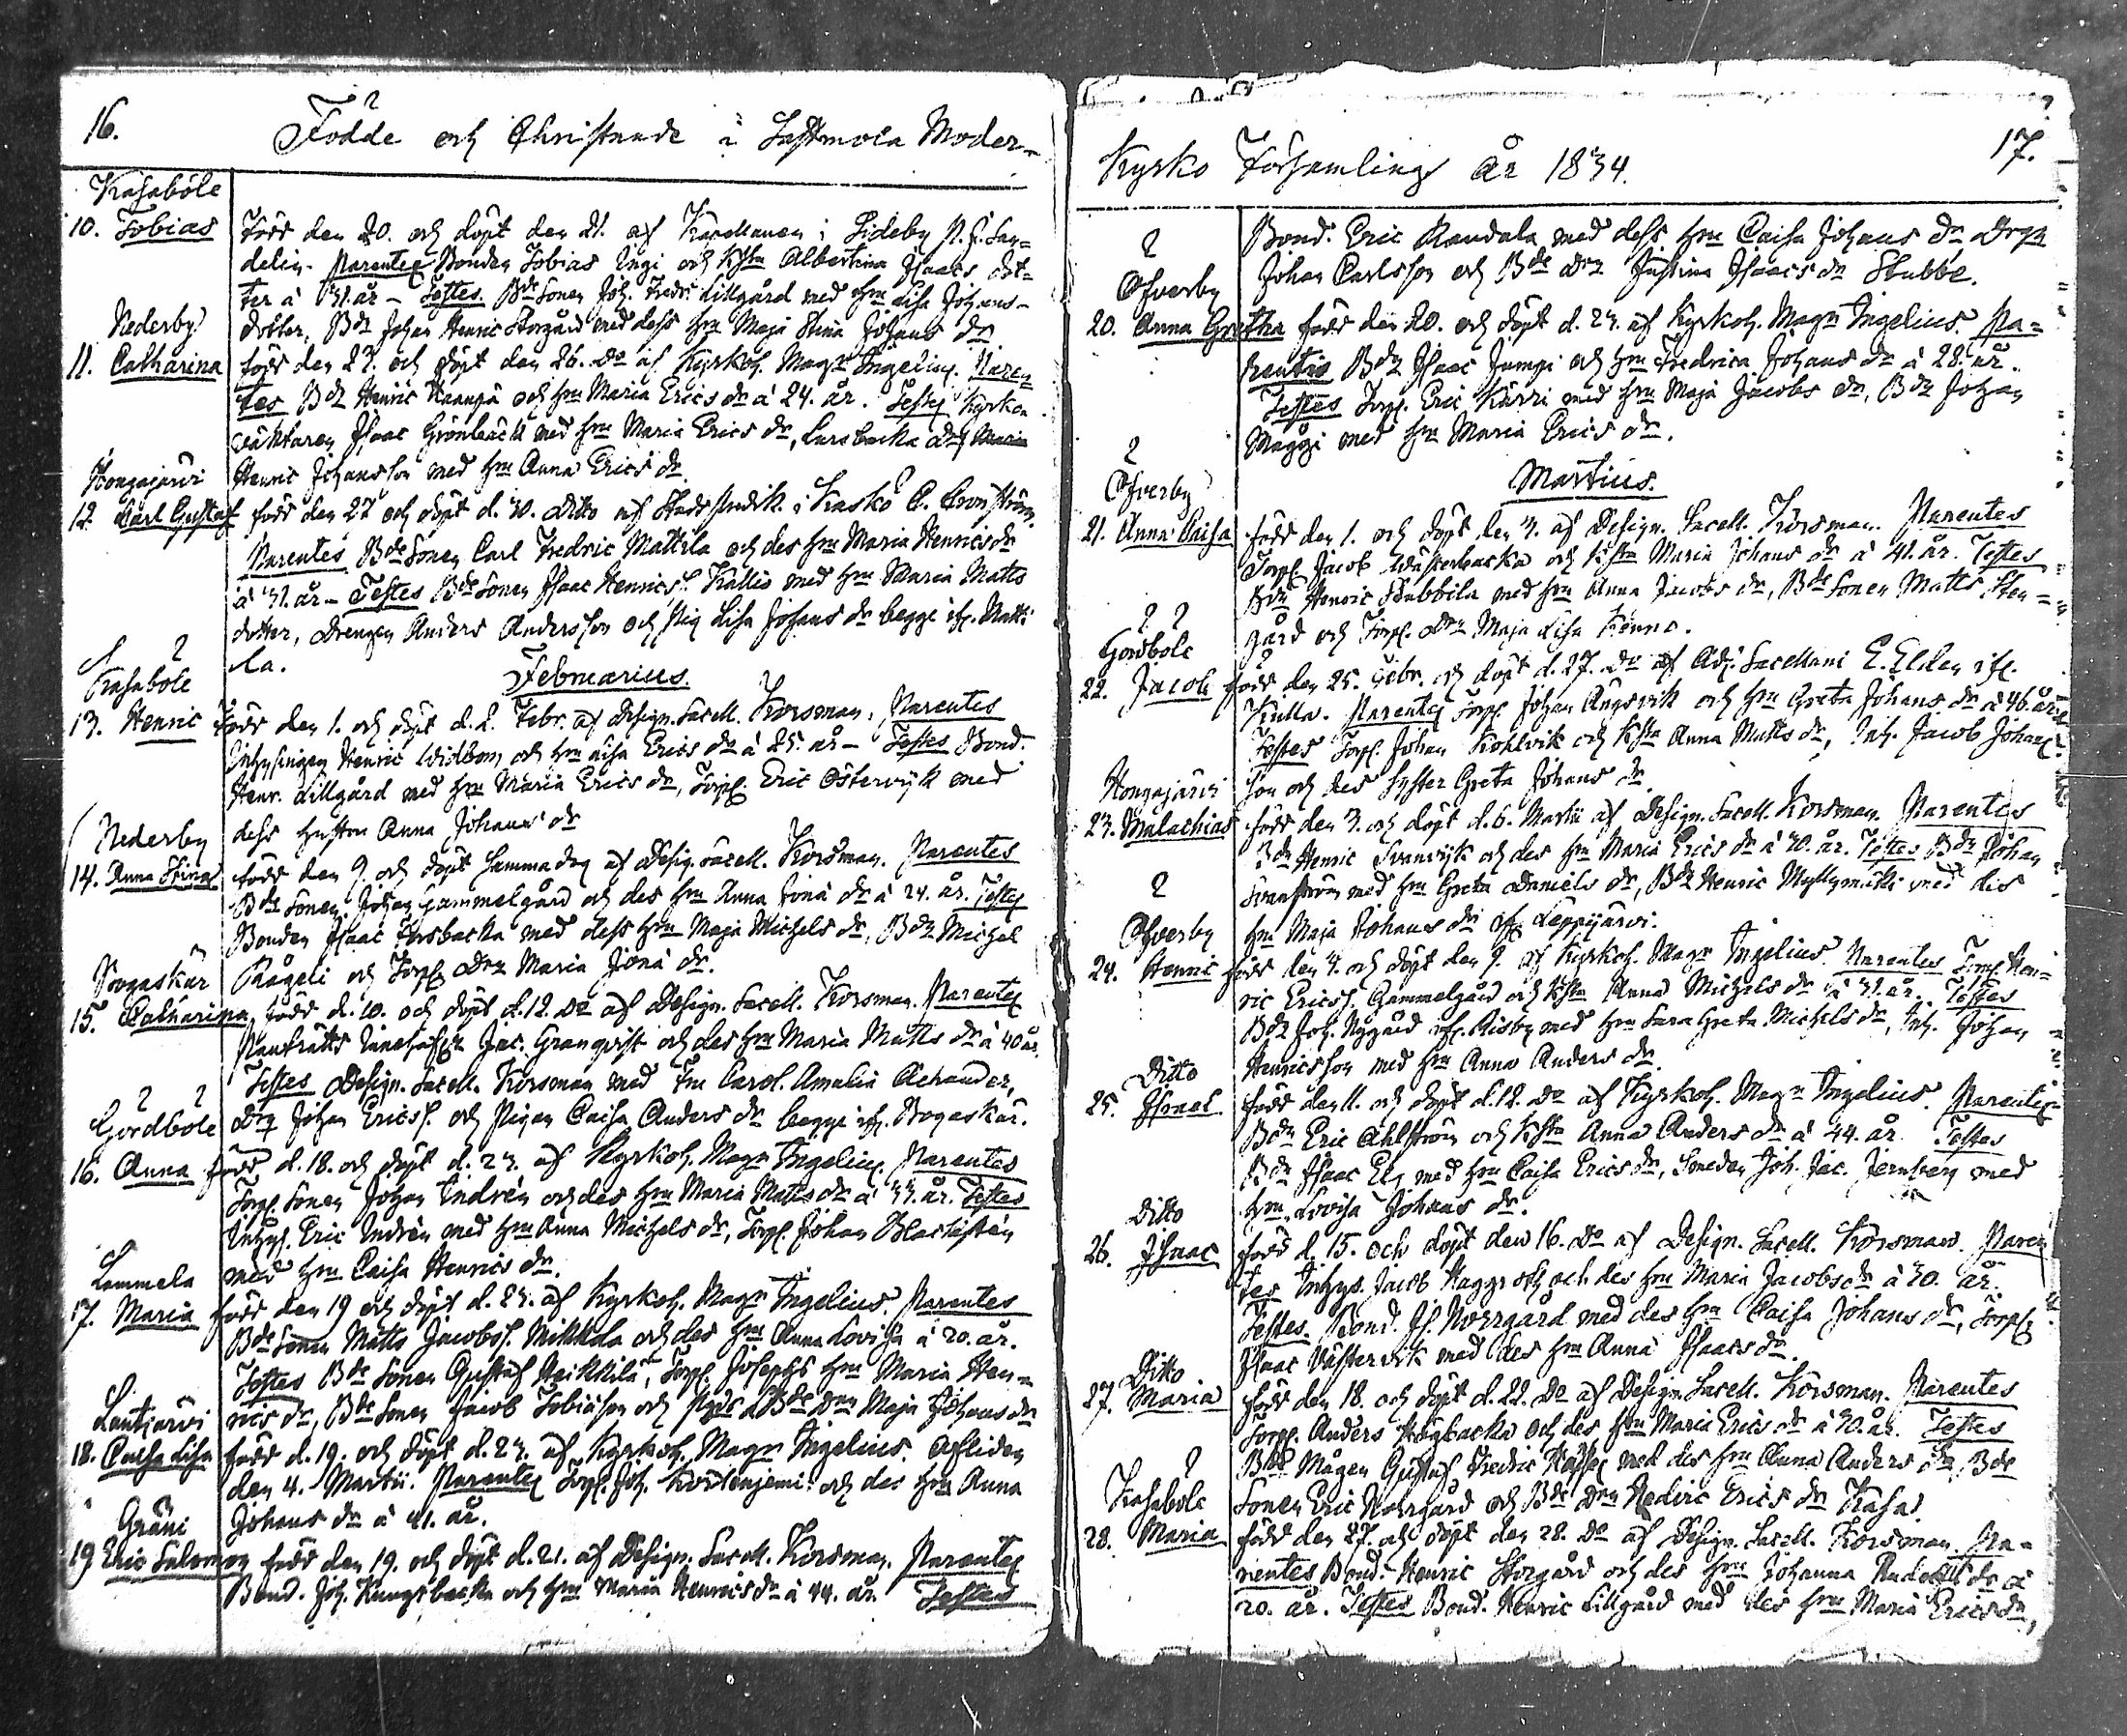 16.
Födde och Christnade i Lappmola Moder-
Kasaböle
10. Tobias född den 20. och döpt den 21. af Kapellanen i Sideby
delin. Parentes Bonden Tobias Ingi och hsta Albertina Isaacs dot=
ter á 31. år – Testes Bde Sonen Joh. Fredr. Lillgård med hru Lisa Johans-
dotter, Bdn Johan Henric Storgård med dess hru Maja Stina Johans dr
Nederby
11. Catharina född den 23. och döpt den 26. do af Kyrkoh. Magr Ingelius. Paren
tes Bdn Henric Haanpä och hru Maria Erics dr á 24. år. Testes Kyrko
väktaren Isaac Grönback med hru Maria Erics dr, Larsbacka
Henric Johansson med hru Anna Erics dr
Hongajärvi
12. Carl Gustaf född den 27 och döpt d. 30. ditto af Stads predik. i Kaskö C. Cronström
Parentes Bde Sonen Carl Fredric Mattila och des hru Maria Henrics dr
á 31. år – Testes Bde Sonen Isaac Henrics. Kallio med hru Maria Matts
dotter, Drengen Anders Andersson och pig. Lisa Johans dr begge ifr. Matti
la.
Februarius.
Kasaböle
13. Henric född den 1. och döpt d. 2. Febr. af Design. Sacell. Korsman. Parentes
Inhysingen Henric Widbom och hru Lisa Erics dr á 25. år – Testes Bond.
Henr. Lillgård med hru Maria Erics dr, Torp. Eric Östervik med
dess hustru Anna Johans dr
Nederby
14. Anna Stina född den 9. och döpt samma dag af Design. Sacell. Korsman. Parentes
Bde Sonen Johan Gammelgård och des hru Anna Jona dr á 24. år. Testes
Bonden Isaac Forsbacka med dess hru Maja Michels dr, Bdn Michel
Rågeli och Torp. Drn Maria Jona dr.
Skogaskär
15. Catharina född d. 10. och döpt d. 12. do af Design. Sacell. Korsman. Parentes
Jac. Granqvist och des hru Maria Matts dr á 40 år.
Testes Design. Sacell. Korsman med Fru Carol. Amalia Achander,
Dr. Johan Erics. och Pigan Caisa Anders dr begge ifr. Skogaskär.
Gördböle
16. Anna född d. 18. och döpt d. 23. af Kyrkoh. Magr Ingelius. Parentes
Torp. Sonen Johan Indrén och des hru Maria Matts dr á 33. år. Testes
Inhys. Eric Indrén med hru Anna Michels dr, Torp. Johan
med hru Caisa Henrics dr.
Lammela
17. Maria född den 19 och döpt d. 23. af Kyrkoh. Magr Ingelius. Parentes
Bde Sonen Matts Jacobs. Mikkola och des hru Anna Lovisa á 20. år.
Testes Bde Sonen Gustaf Heikkilä, Torp. Josephs hru Maria Hen=
rics dr, Bde Sonen Jacob Tobiasson och Bde Drn Maja Johans dr
Lautjärvi
18. Caisa Lisa född d. 19. och döpt d. 23. af Kyrkoh. Magr Ingelius. Afliden
den 4. Martii. Parentes Torp. Joh. Kortenjemi och des hru Anna
Johans dr á 41. år.
Gräni
19 Eric Salomon född den 19. och döpt d. 21. af Design. Sacell. Korsman. Parentes
Bond. Joh. Kungsbacka och hru Maria Henrics dr á 44. år. Testes
17.
Kyrko Församling År 1834.
Bond. Eric Randala med dess hru Caisa Johans dr
Johan Carlsson och Bde Drn Justina Isaacs dr Stubbe.
Öfverby
20. Anna Gretha född den 20. och döpt d. 23. af Kyrkoh. Magr Ingelius. Pa=
rentes Bdn Isaac Jumpi och hru Fredrica Johans dr á 28. år.
Testes Torp. Eric Kärri med hru Maja Jacobs dr, Bdn Johan
Mäggi med hru Maria Erics dr.
Martius.
Öfverby
21. Anna Caisa född den 1. och döpt den 3. af Design. Sacell. Korsman. Parentes
Torp. Jacob Wästerbacka och hsta Maria Johans dr á 41. år. Testes
Bdn Henric Stubbila med hru Anna Jacobs dr, Bde Sonen Matts Sten=
gård och Torp. Drn Maja Lisa Fänno.
Gördböle
22. Jacob född den 25. Febr. och döpt d. 27. do af Adj. Sacellani E. Elden ifr.
Kulla. Parentes Torp. Johan Ängsvik och hru Greta Johans dr á 46. år.
Testes Torp. Johan Kohlvik och hsta Anna Matts dr, Inh. Jacob Johans
son och des Syster Greta Johans dr.
Hongajärvi
23. Malachias född den 3. och döpt d. 6. Martii af Design. Sacell. Korsman. Parentes
Bdn Henric Svanvik och des hru Maria Erics dr á 30. år. Testes Bdn Johan
Svanström med hru Greta Daniels dr, Bdn Henric Myllymäki med des
hru Maja Johans dr ifr. Leppijärvi.
Öfverby
24. Henric född den 4. och döpt den 9. af Kyrkoh. Magr Ingelius. Parentes Torp. Hen=
ric Erics. Gammelgård och hsta Anna Michels dr á 31. år. Testes
Bdn Joh. Nygård ifr. Risby med hru Sara Greta Michels dr, Inh. Johan
Henricsson med hru Anna Anders dr.
Ditto
25. Ismael född den 11. och döpt d. 12. do af Kyrkoh. Magr Ingelius. Parentes
Bdn Eric Ahlström och hsta Anna Anders dr á 44. år Testes
Bdn Isaac Elg med hru Caisa Erics dr, Smeden Joh. Jac. Jernberg med
hru Lovisa Johans dr.
Ditto
26. Isaac född d. 15. och döpt den 16. do af Design. Sacell. Korsman. Paren
tes Inhys. Jacob Haggrot och des hru Maria Jacobs dr á 30. år.
Testes Bond. Is. Norrgård med des hru Caisa Johans dr, Torp.
Isaac Västervik med des hru Anna Isaacs dr
Ditto
27. Maria född den 18. och döpt d. 22. do af Design. Sacell. Korsman. Parentes
Torp. Anders Högbacka och des hru Maria Erics dr á 30. år. Testes
Bde Mågen Gustaf Fredric med des hru Anna Anders dr, Bde
Sonen Eric Norrgård och Bde Drn Hedvic Erics dr Kasa.
Kasaböle
28. Maria född den 27. och döpt den 28. do af Design. Sacell. Korsman. Pa=
rientes Bond. Henric Storgård och des hru Johanna dr á
20. år. Testes Bond. Henric Lillgård med des hru Maria Erics dr,